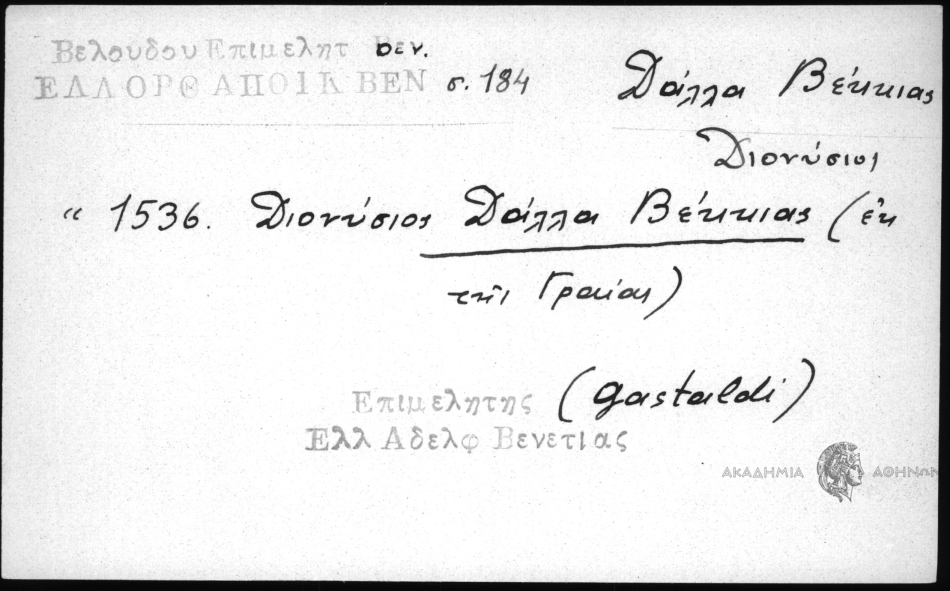 Βελουδου Επιμελητ Βεν.
ΕΛΛ ΟΡΘ ΑΠΟΙΚ ΒΕΝ σ. 184
Δάλλα Βέκκιας
Διονύσιος
“ 1536. Διονύσιος Δάλλα Βέκκιας (ἐκ
τῆς Γραίας)
Επιμελητης (gastaldi)
Ελλ Αδελφ Βενετιας
ΑΚΑΔΗΜΙΑ ΑΘΗΝΩΝ